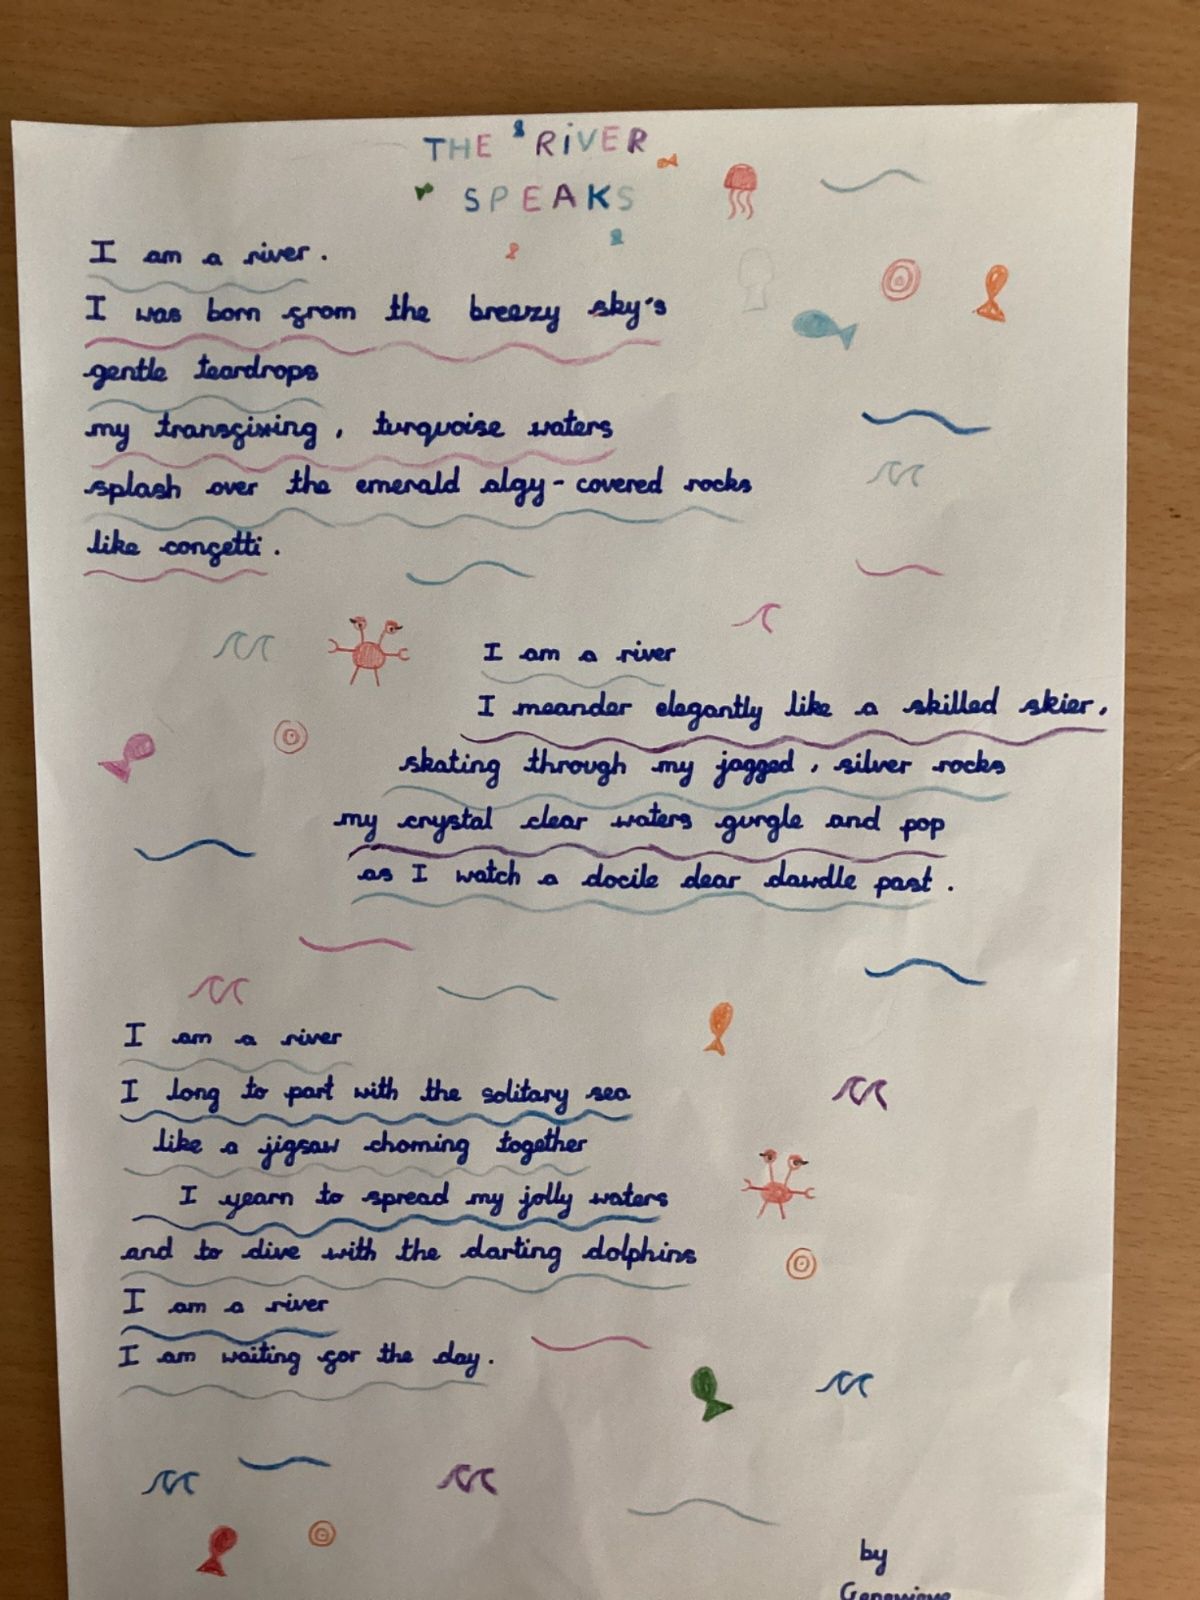 THE RIVER
SPEAKS
I am a river.
I was born from the breezy sky's
gentle teardrops
my transfixing, turquoise waters
splash over the emerald algy-covered rocks
like confetti.
I am a river
I meander elegantly like a skilled skier,
skating through my jagged, silver rocks
my crystal clear waters gurgle and pop
as I watch a docile dear dawdle past.
I am a river
I long to part with the solitary sea
like a jigsaw choming together
I yearn to spread my jolly waters
and to dive with the darting dolphins
I am a river
I am waiting for the day.
by
Genevieve